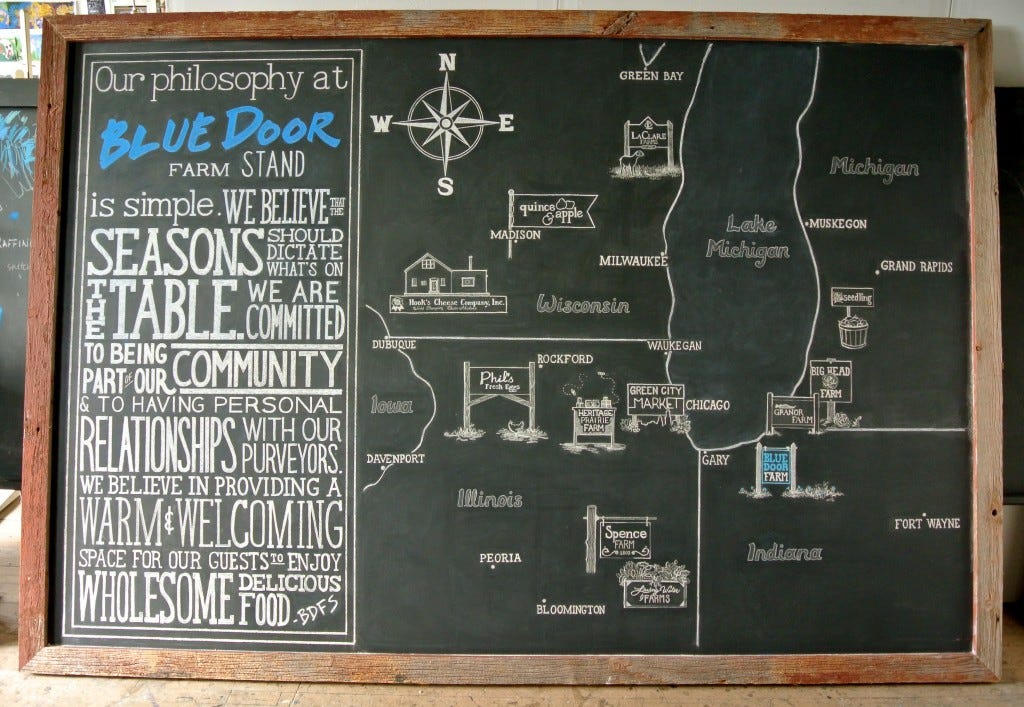 Our philosophy at
BLUE DOOR
FARM STAND
is simple. WE BELIEVE THAT THE
SEASONS SHOULD DICTATE WHAT'S ON
THE TABLE. WE ARE COMMITTED
TO BEING PART of OUR COMMUNITY
& TO HAVING PERSONAL
RELATIONSHIPS WITH OUR PURVEYORS.
WE BELIEVE IN PROVIDING A
WARM & WELCOMING
SPACE FOR OUR GUESTS TO ENJOY
WHOLESOME DELICIOUS FOOD. -BDFS
N
W E
S
GREEN BAY
LACLARE
FARMS
Michigan
quince & apple
MADISON
Lake
Michigan
MUSKEGON
MILWAUKEE
GRAND RAPIDS
Hook's Cheese Company, Inc.
Wisconsin
seedling
DUBUQUE
WAUKEGAN
ROCKFORD
Phil's
Fresh Eggs
BIG HEAD
FARM
Iowa
HERITAGE
PRAIRIE
FARM
GREEN CITY
MARKET
CHICAGO
GRANOR
FARM
DAVENPORT
GARY
BLUE
DOOR
FARM
Illinois
FORT WAYNE
Spence
FARM
Indiana
PEORIA
Living Water
FARMS
BLOOMINGTON